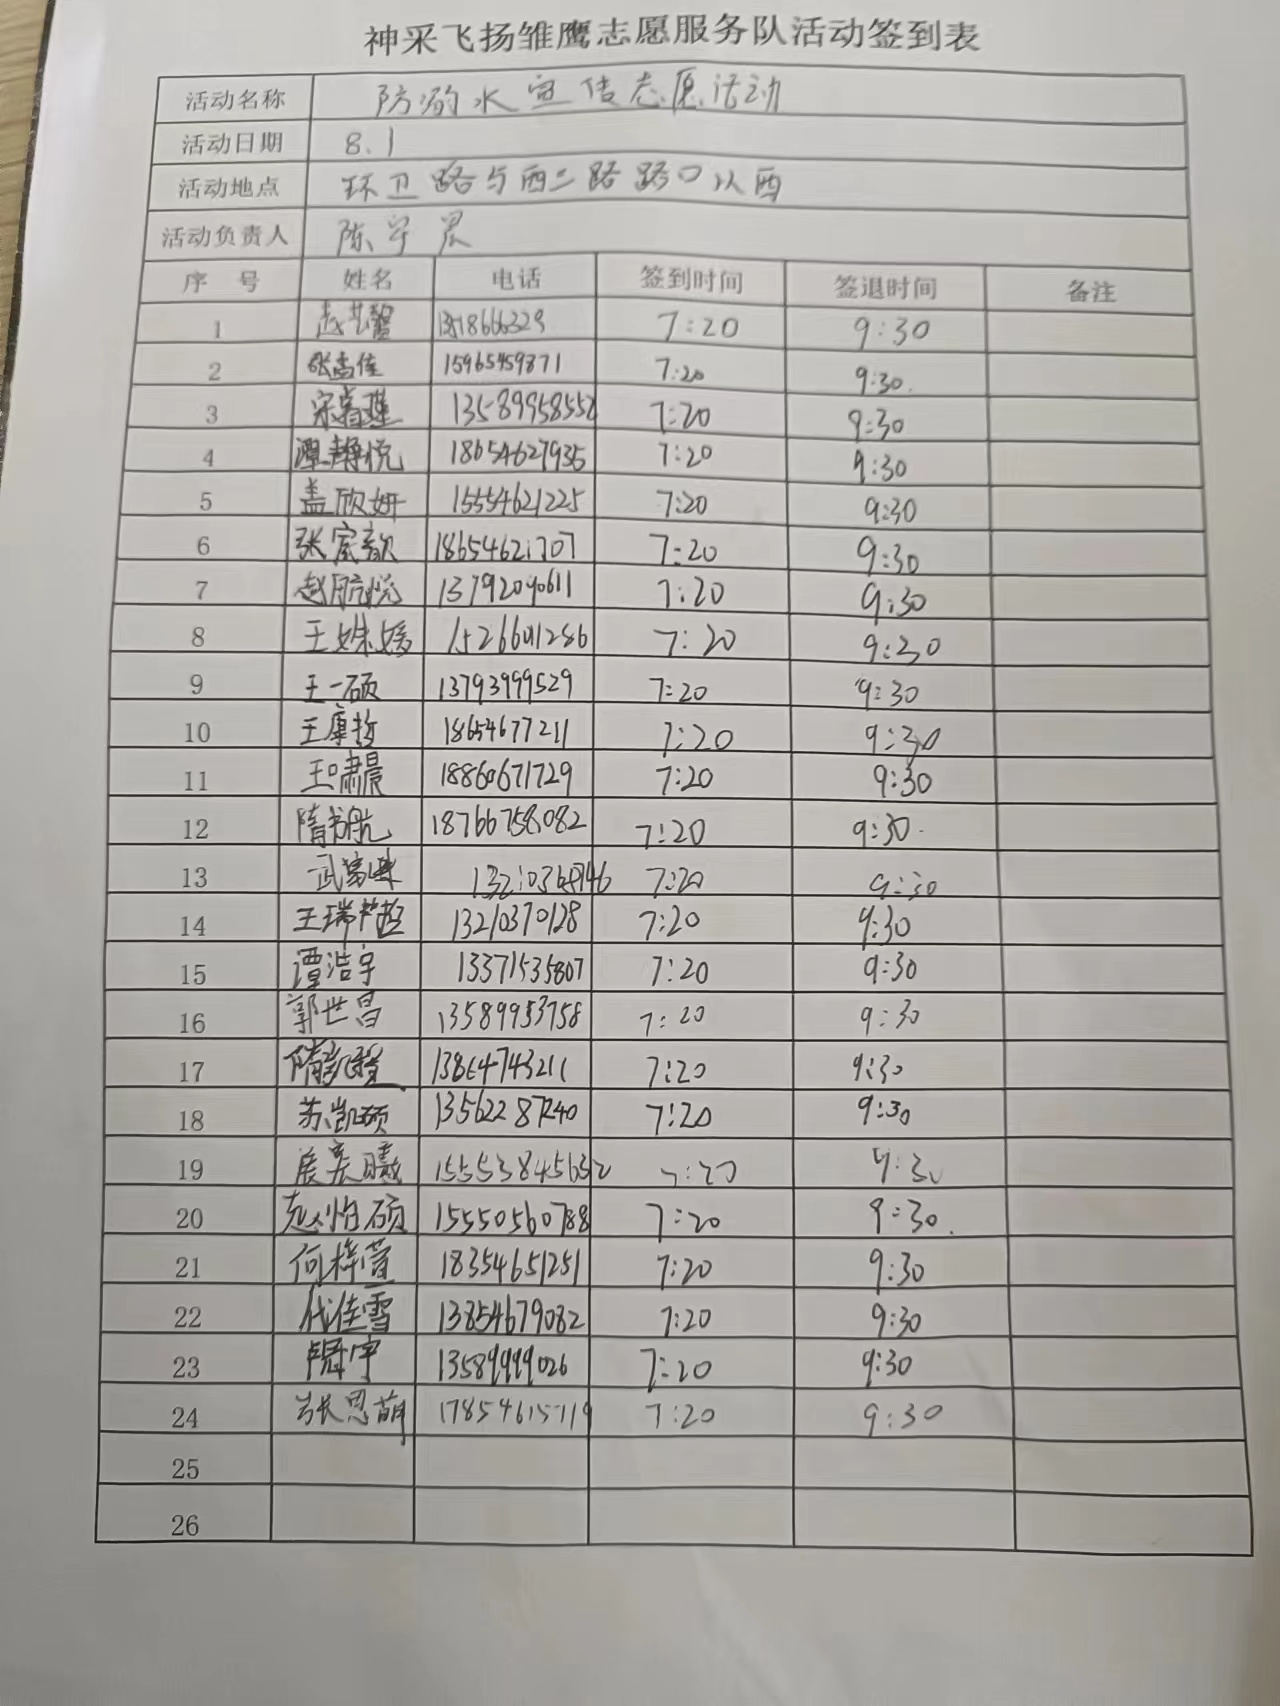 神采飞扬雏鹰志愿服务队活动签到表
活动名称 防溺水宣传志愿活动
活动日期 8.1
活动地点 环卫路与西二路路口以西
活动负责人 陈宇晨
序号 姓名 电话 签到时间 签退时间 备注
1 7:20 9:30
2 张孟佳 15965459871 7:20 9:30
3 宋睿瑾 13589958552 7:20 9:30
4 潭静悦 18654627935 7:20 9:30
5 盖欣妍 15554621225 7:20 9:30
6 张宸歆 18654621707 7:20 9:30
7 赵航悦 13792090611 7:20 9:30
8 王姝媛 7:20 9:30
9 王一硕 13793999529 7:20 9:30
10 王康哲 18654677211 7:20 9:30
11 王啸晨 18860671729 7:20 9:30
12 隋书航 18766758082 7:20 9:30
13 7:20 9:30
14 13210370128 7:20 9:30
15 谭浩宇 13371535807 7:20 9:30
16 郭世昌 13589953758 7:20 9:30
17 13864743211 7:20 9:30
18 苏凯硕 13562287240 7:20 9:30
19 15553845632 7:20 9:30
20 赵怡硕 15550560788 7:20 9:30
21 何梓萱 18354651251 7:20 9:30
22 代佳雪 13854679082 7:20 9:30
23 13589999026 7:20 9:30
24 张思萌 17854615719 7:20 9:30
25
26